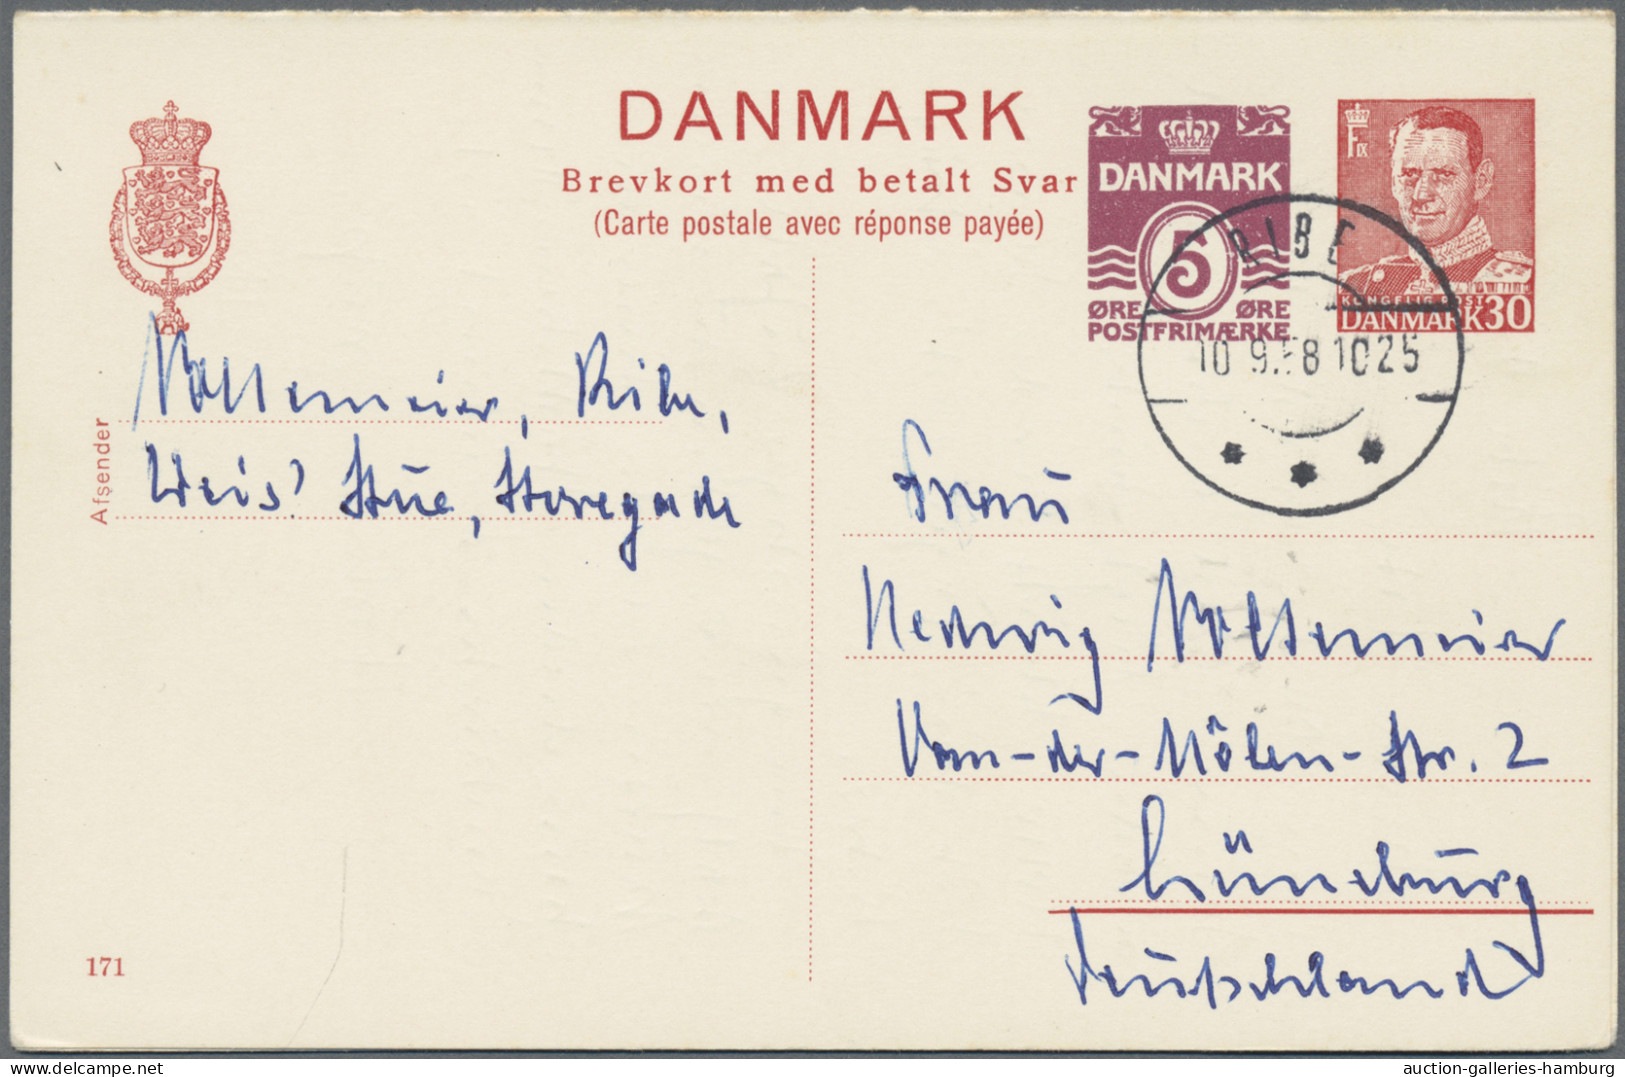 DANMARK
Brevkort med betalt Svar
(Carte postale avec réponse payée)
DANMARK
5
ØRE ØRE
POSTFRIMÆRKE
KONGELIG POST
DANMARK 30
RIBE
10 9.58 1025
Afsender
Noltemeier, Ribe,
Weis' Stue, Storegade
Frau
Hedwig Noltemeier
Von-der-Mölen-Str. 2
Lüneburg
Deutschland
171
auction-galleries-hamburg